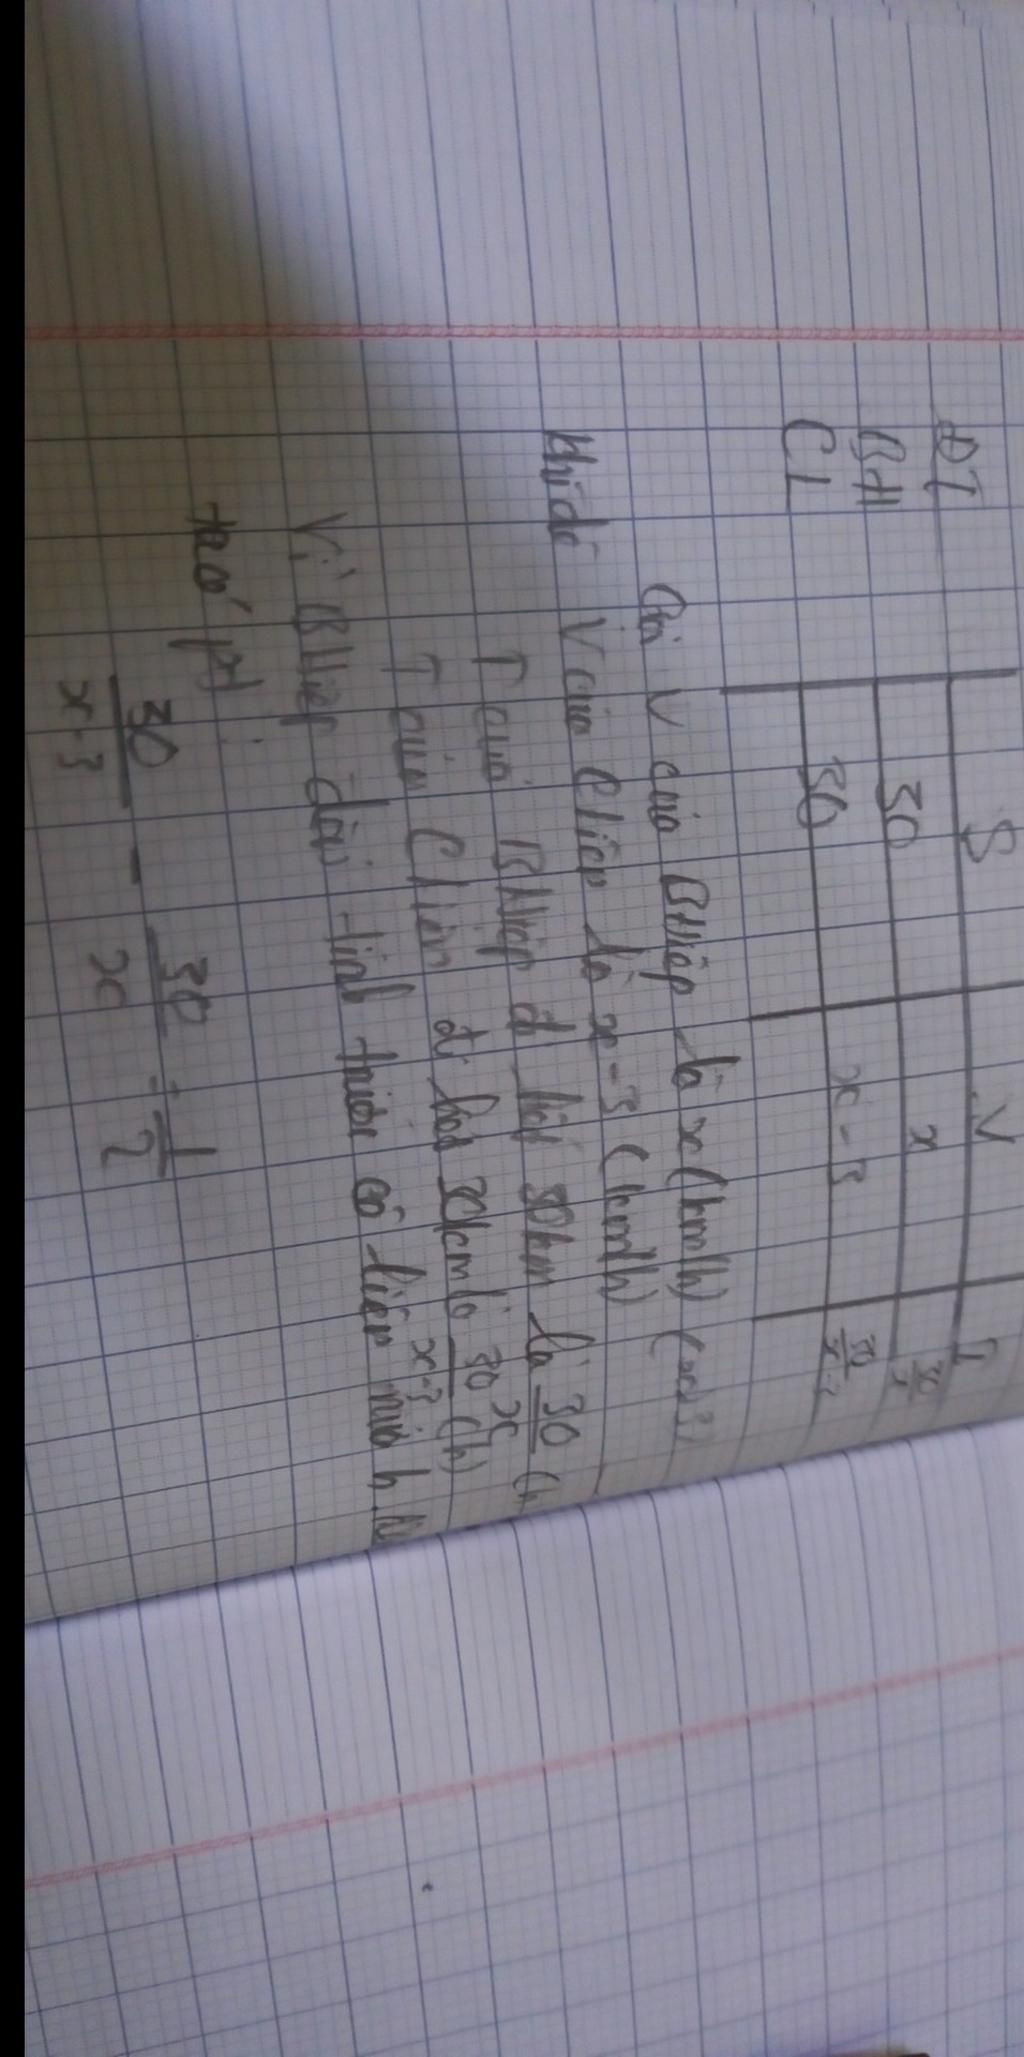 ĐT S V T
BH 30 x 30/x
CL 30 x - 3 30/x-3
Gọi V của BHiệp là x (km/h) (x>3)
khi đó V của Cliên là x - 3 (km/h)
T của BHiệp đi hết 30km là 30/x (h
T của Cliên đi hết 30km là 30/x-3 (h)
Vì BHiệp đến tỉnh trước cô liên nửa h
ta có pt:
30/x-3 - 30/x = 1/2